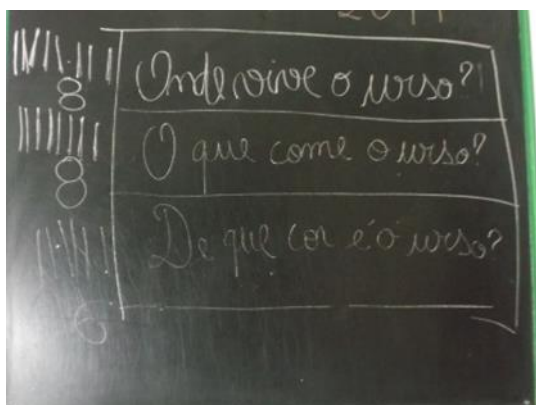 Onde vive o urso?
8
O que come o urso?
8
De que cor é o urso?
6